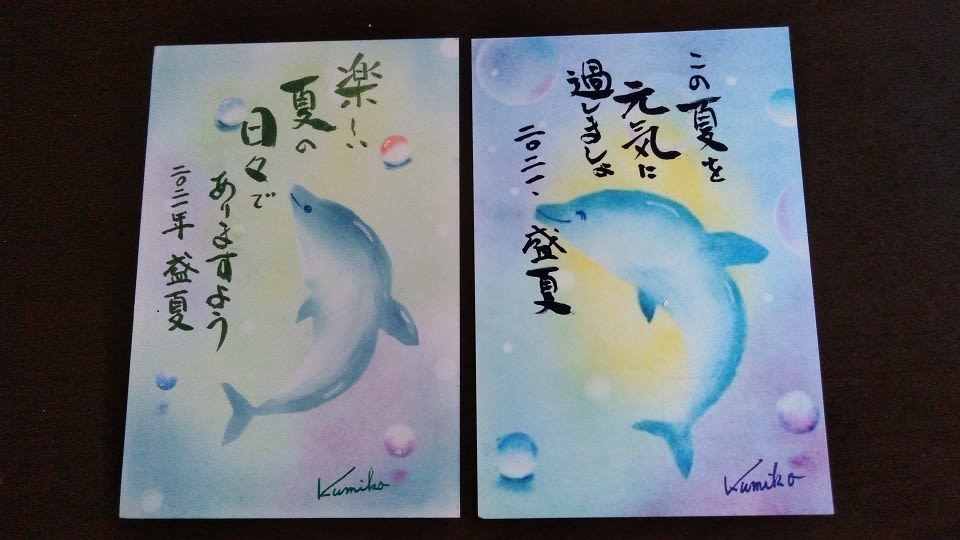 楽しい
夏の
日々で
ありますよう
二〇二一年 盛夏
Kumiko
この夏を
元気に
過しましょ
二〇二一、盛夏
Kumiko